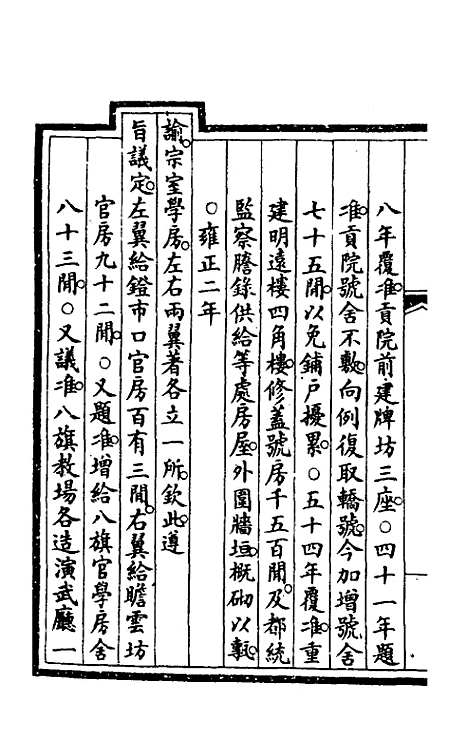 八年覆准貢院前建牌坊三座○四十一年題
准貢院號舍不敷向例復取轎號今加增號舍
七十五閒以免鋪戶擾累○五十四年覆准重
建明遠樓四角樓修蓋號房千五百閒及都統
監察謄錄供給等處房屋外圍牆垣概砌以甎
○雍正二年
諭宗室學房左右兩翼著各立一所欽此遵
旨議定左翼給鐙市口官房百有三閒右翼給瞻雲坊
官房九十二閒○又題准增給八旗官學房舍
八十三閒○又議准八旗教場各造演武廳一